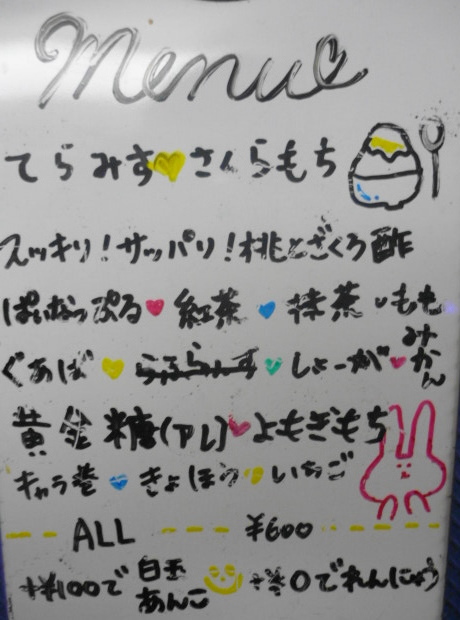 Menu
てらみす♥さくらもち
スッキリ!サッパリ!桃とざくろ酢
ぱいなっぷる♥紅茶♥抹茶・もも
みかん
ぐあば♥ ♥しょーが♥
黄金糖(アレ)♥よもぎもち
キャラ巻♥きょほう♥いちご
ALL ¥600
+¥100で白玉あんこ +¥0でれんにゅう